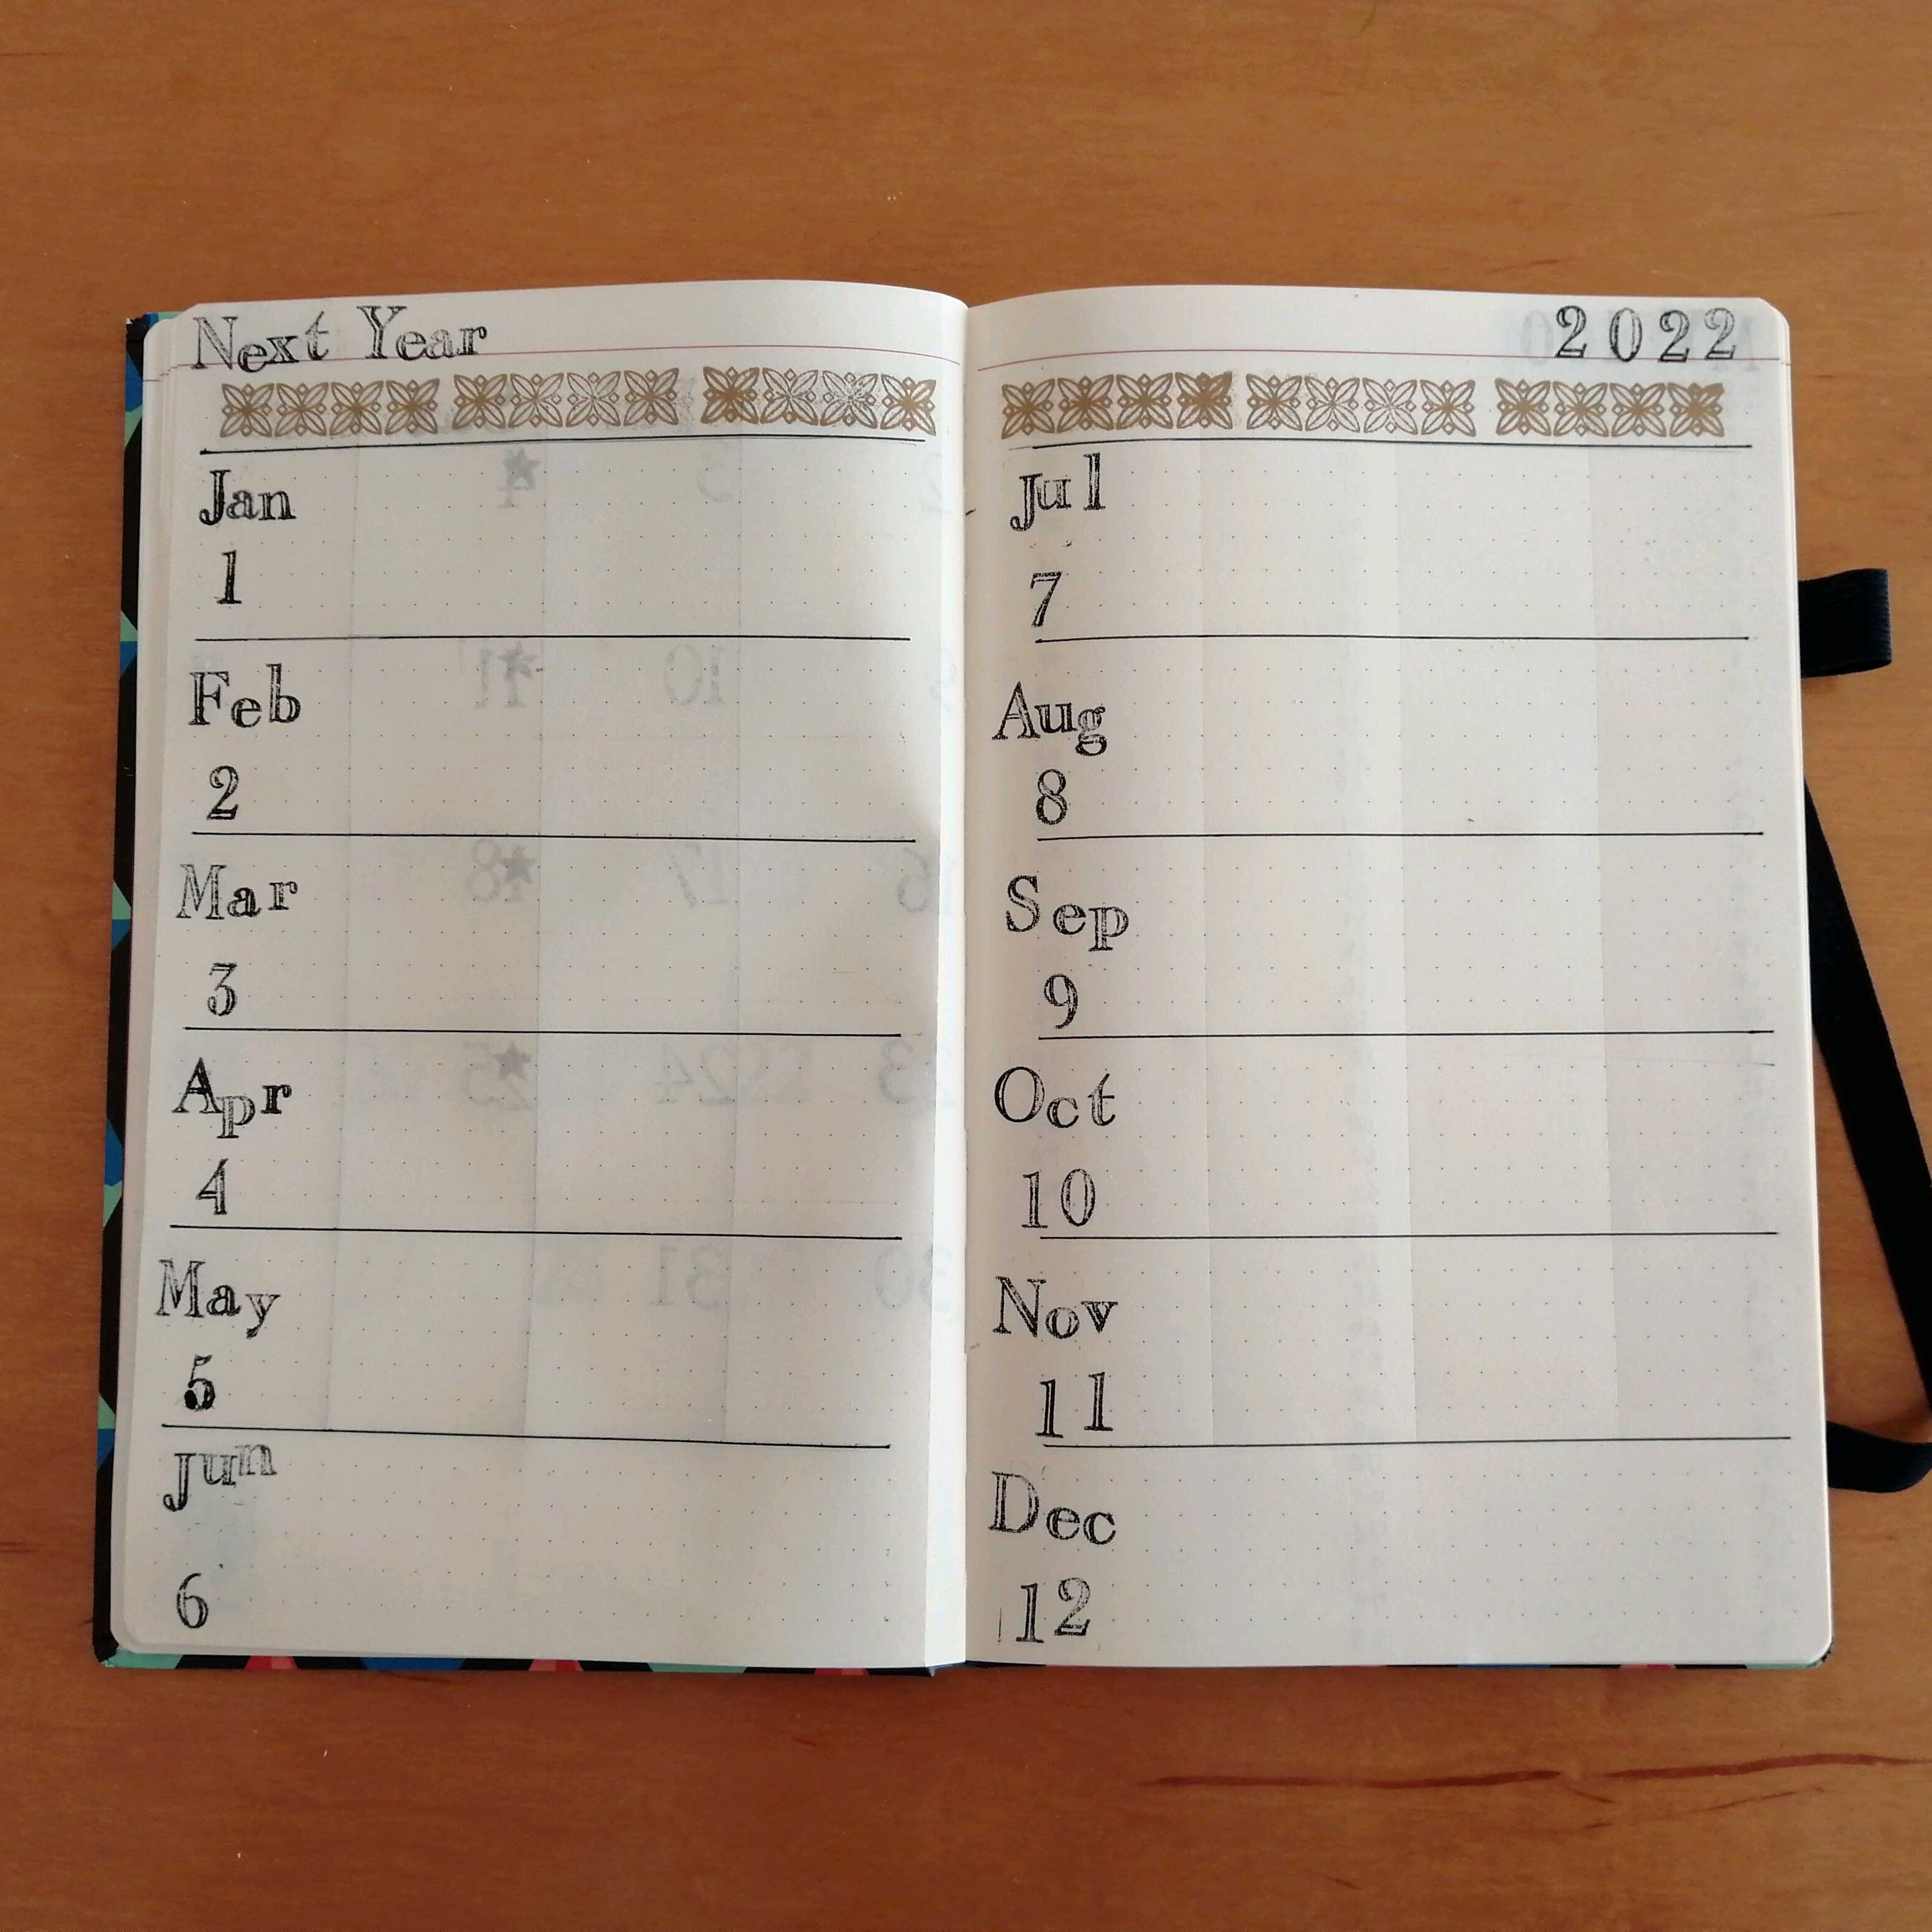 Next Year
Jan
1
Feb
2
Mar
3
Apr
4
May
5
Jun
6
2022
Jul
7
Aug
8
Sep
9
Oct
10
Nov
11
Dec
12